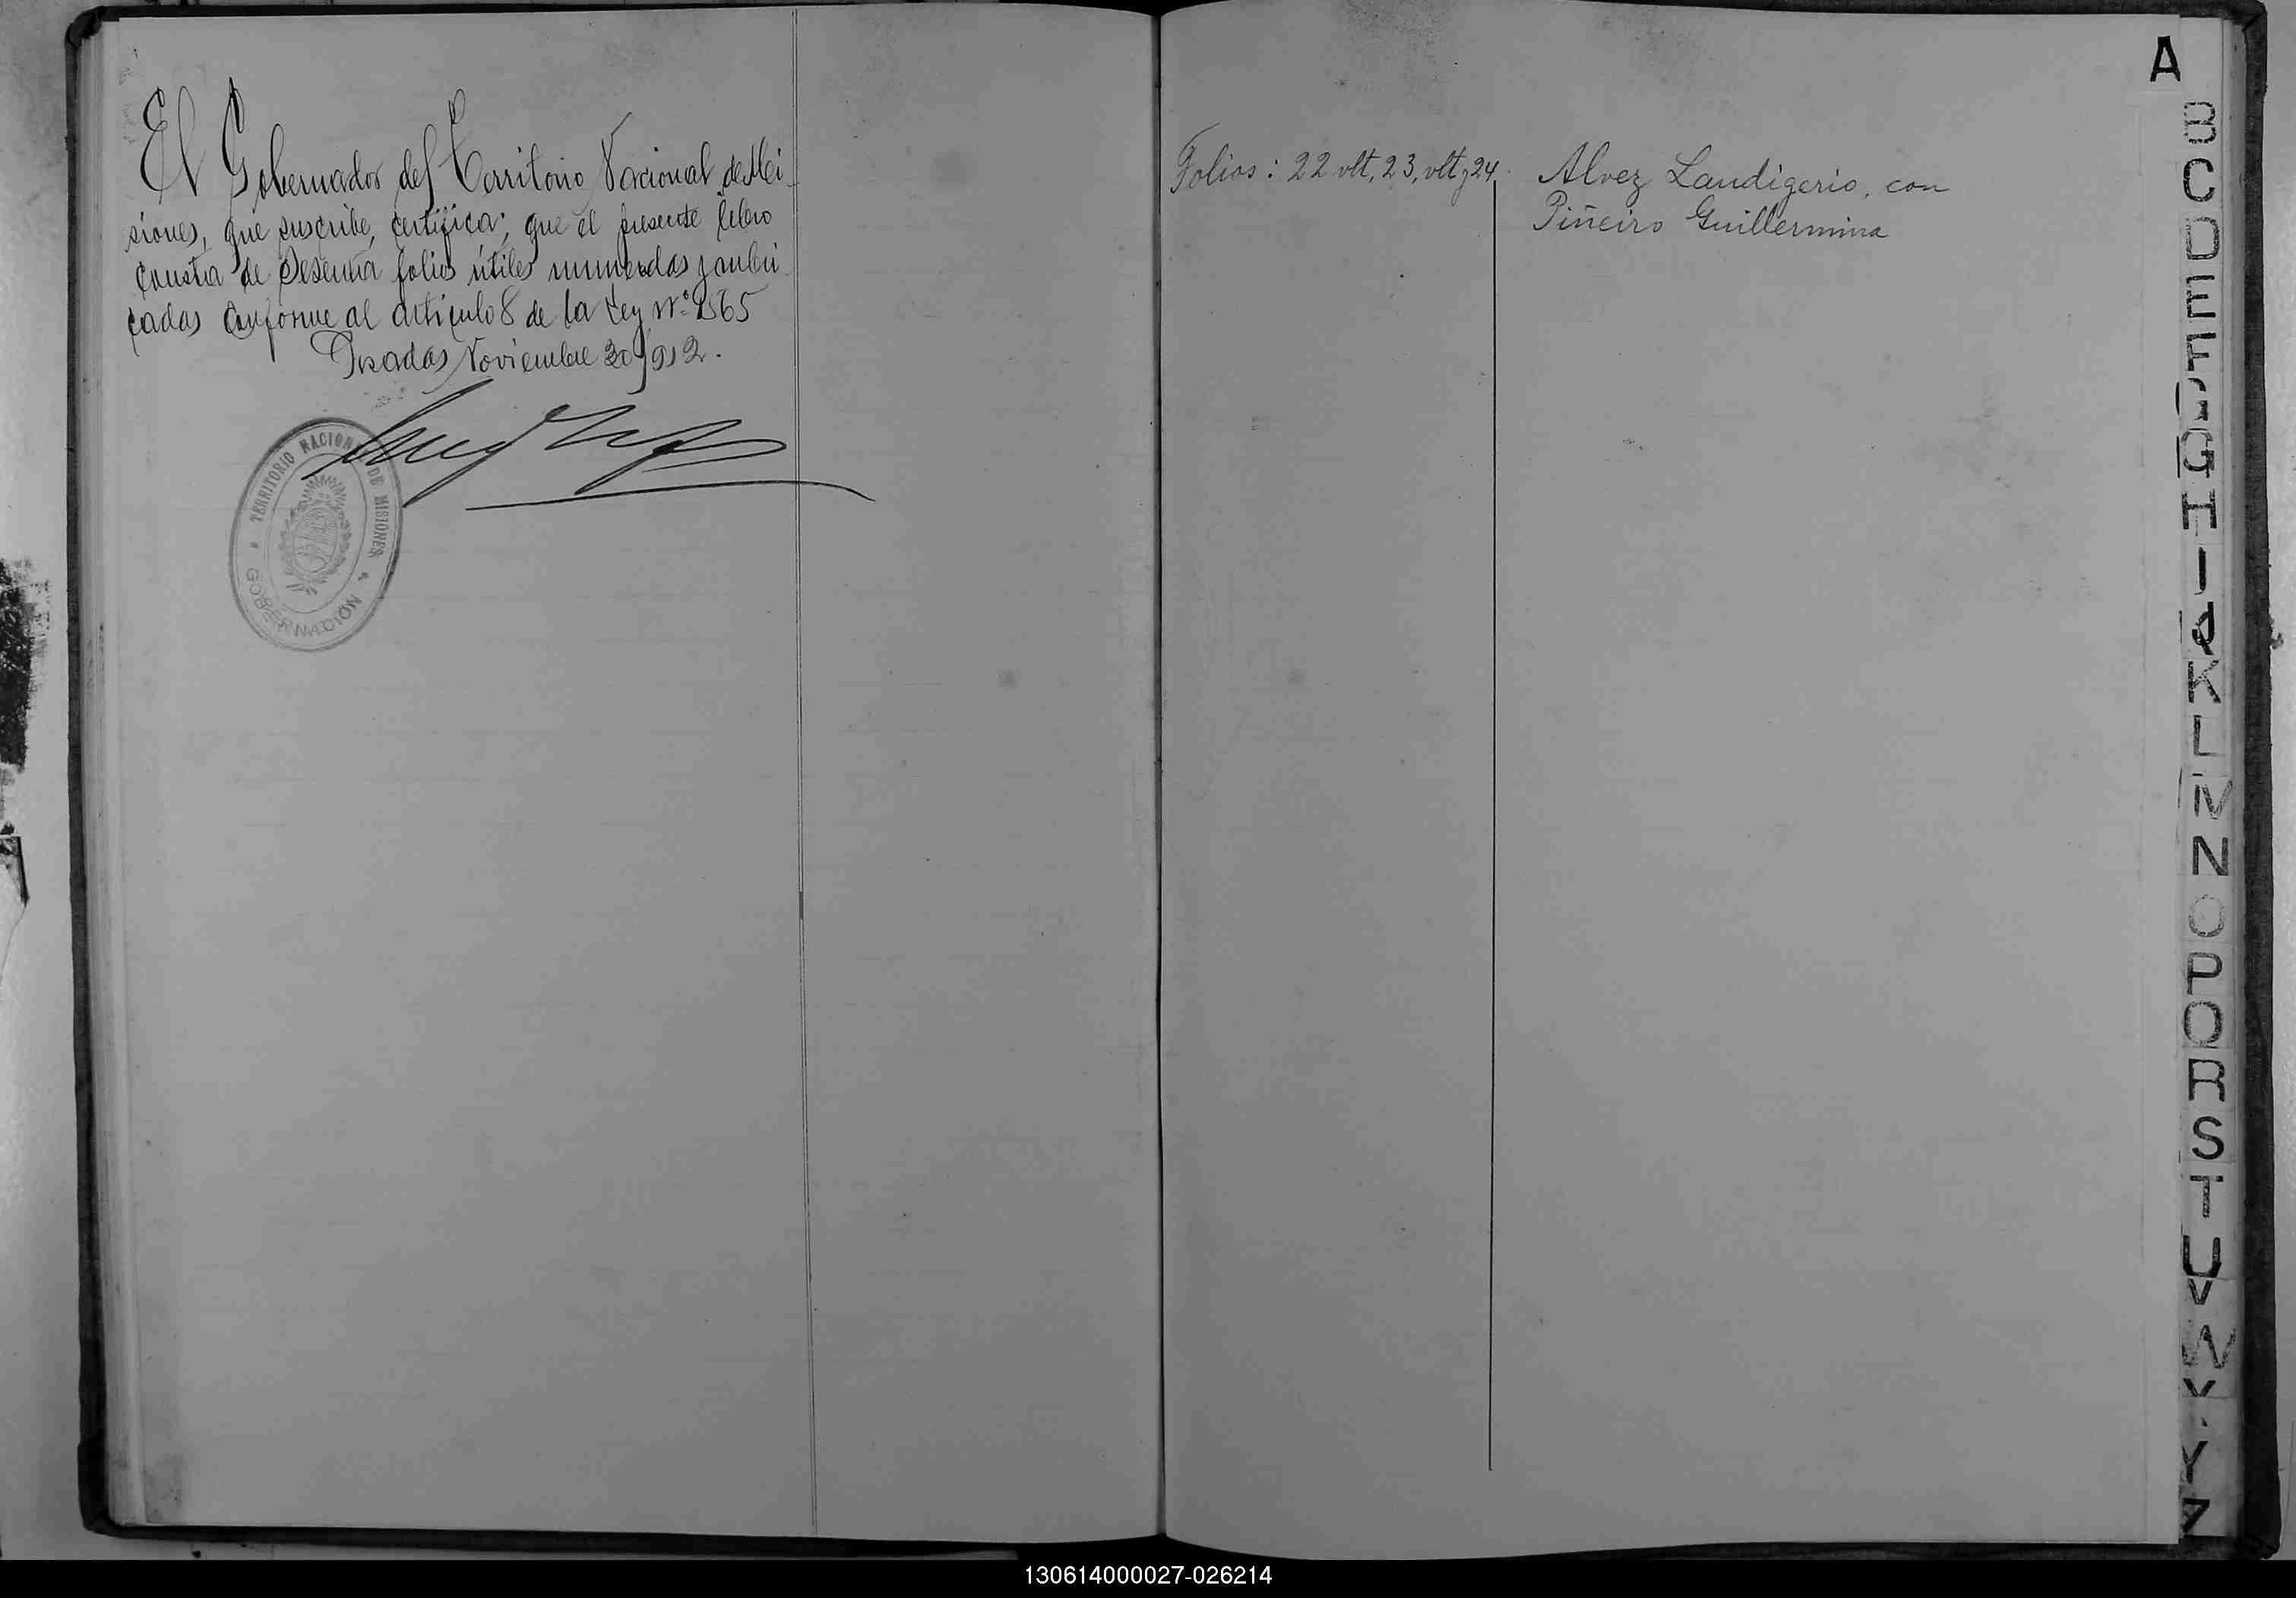 El Gobernador del Territorio Nacional de Mi
siones, que suscribe, certifica; que el presente libro
consta de sesenta folios útiles numerados y rubri
cadas conforme al articulo 8 de la Ley Nº 1565
Posadas Noviembre 30/912.
TERRITORIO NACIONAL DE MISIONES
GOBERNACIÓN
Folios: 22 vlt, 23, vlt y 24.
Alvez Landigerio, con
Piñeiro Guillermina
A
B
C
D
E
F
G
H
I
J
K
L
M
N
O
P
Q
R
S
T
U
V
W
X
Y
Z
130614000027-026214